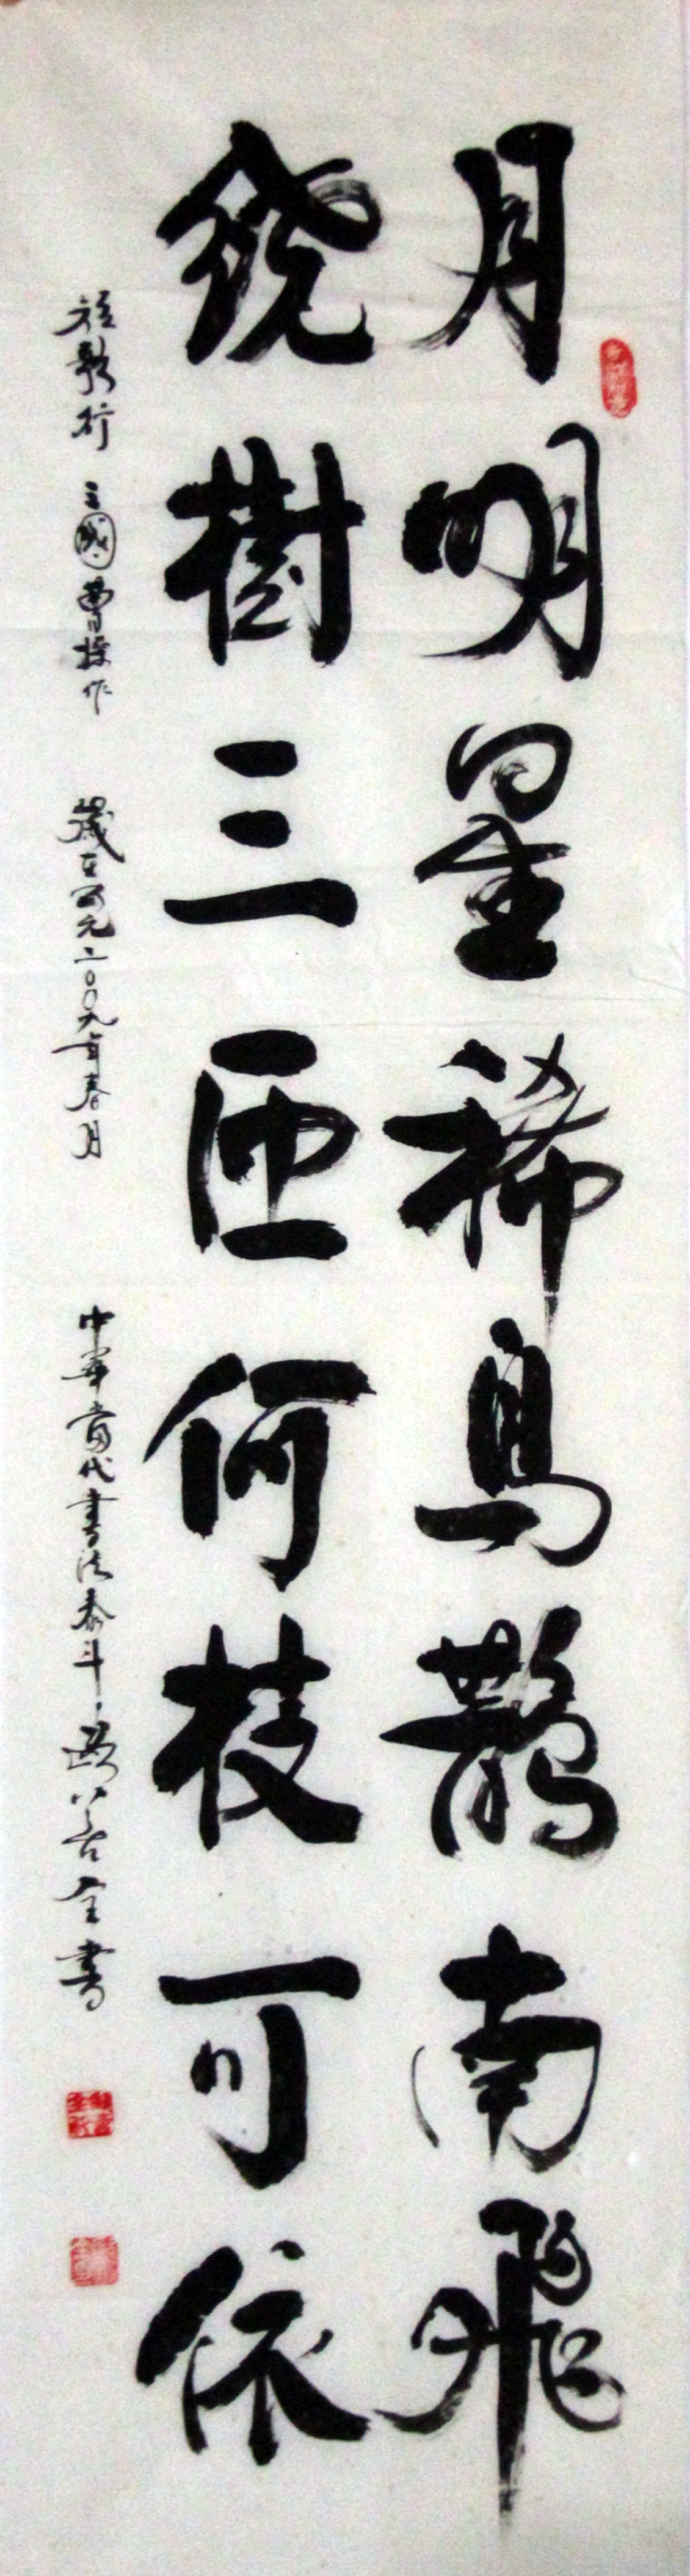 月明星稀烏鵲南飛
绕樹三匝何枝可依
短歌行 三國曹操作 歲在公元二〇〇九年春月 中華當代書法泰斗 書